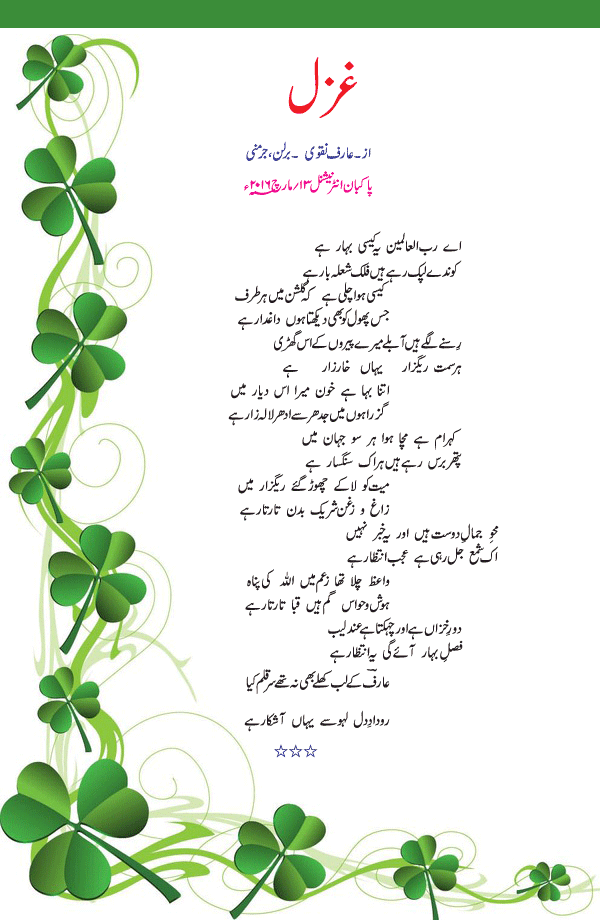 غزل
از۔ عارف نقوی ۔ برلن، جرمنی
پاکبان انٹرنیشنل ۱۳/ مارچ ۲۰۱۶ء
اے رب العالمین یہ کیسی بہار ہے
کوندے لپک رہے ہیں فلک شعلہ بار ہے
کیسی ہوا چلی ہے کہ گلشن میں ہر طرف
جس پھول کو بھی دیکھتا ہوں داغدار ہے
رِسنے لگے ہیں آبلے میرے پیروں کے اس گھڑی
ہر سمت ریگزار یہاں خارزار ہے
اتنا بہا ہے خون میرا اس دیار میں
گزرا ہوں میں جدھر سے ادھر لالہ زار ہے
کہرام ہے مچا ہوا ہر سو جہان میں
پتھر برس رہے ہیں ہر اک سنگسار ہے
میت کو لاکے چھوڑ گئے ریگزار میں
زاغ و زغن شریک بدن تار تار ہے
محوِ جمالِ دوست ہیں اور یہ خبر نہیں
اک شمع جل رہی ہے عجب انتظار ہے
واعظ چلا تھا زعم میں اللہ کی پناہ
ہوش و حواس گم ہیں قبا تار تار ہے
دورِ خزاں ہے اور چہکتا ہے عندلیب
فصلِ بہار آئے گی یہ انتظار ہے
عارفؔ کے لب کھلے بھی نہ تھے سر قلم کیا
رودادِ دل لہو سے یہاں آشکار ہے
☆☆☆